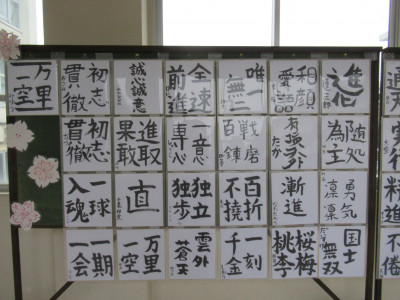 万里
一空
初志
貫徹
誠心誠意
全速
前進
唯一
無二
和顔
愛語
進化
初志
貫徹
進取
果敢
一意
専心
百戦
錬磨
随処
為主
実行
一球
入魂
直
独立
独歩
百折
不撓
漸進
勇気
凛凛
精進
一期
一会
万里
一空
雲外
蒼天
一刻
千金
桜梅
桃李
国士
無双
不倦